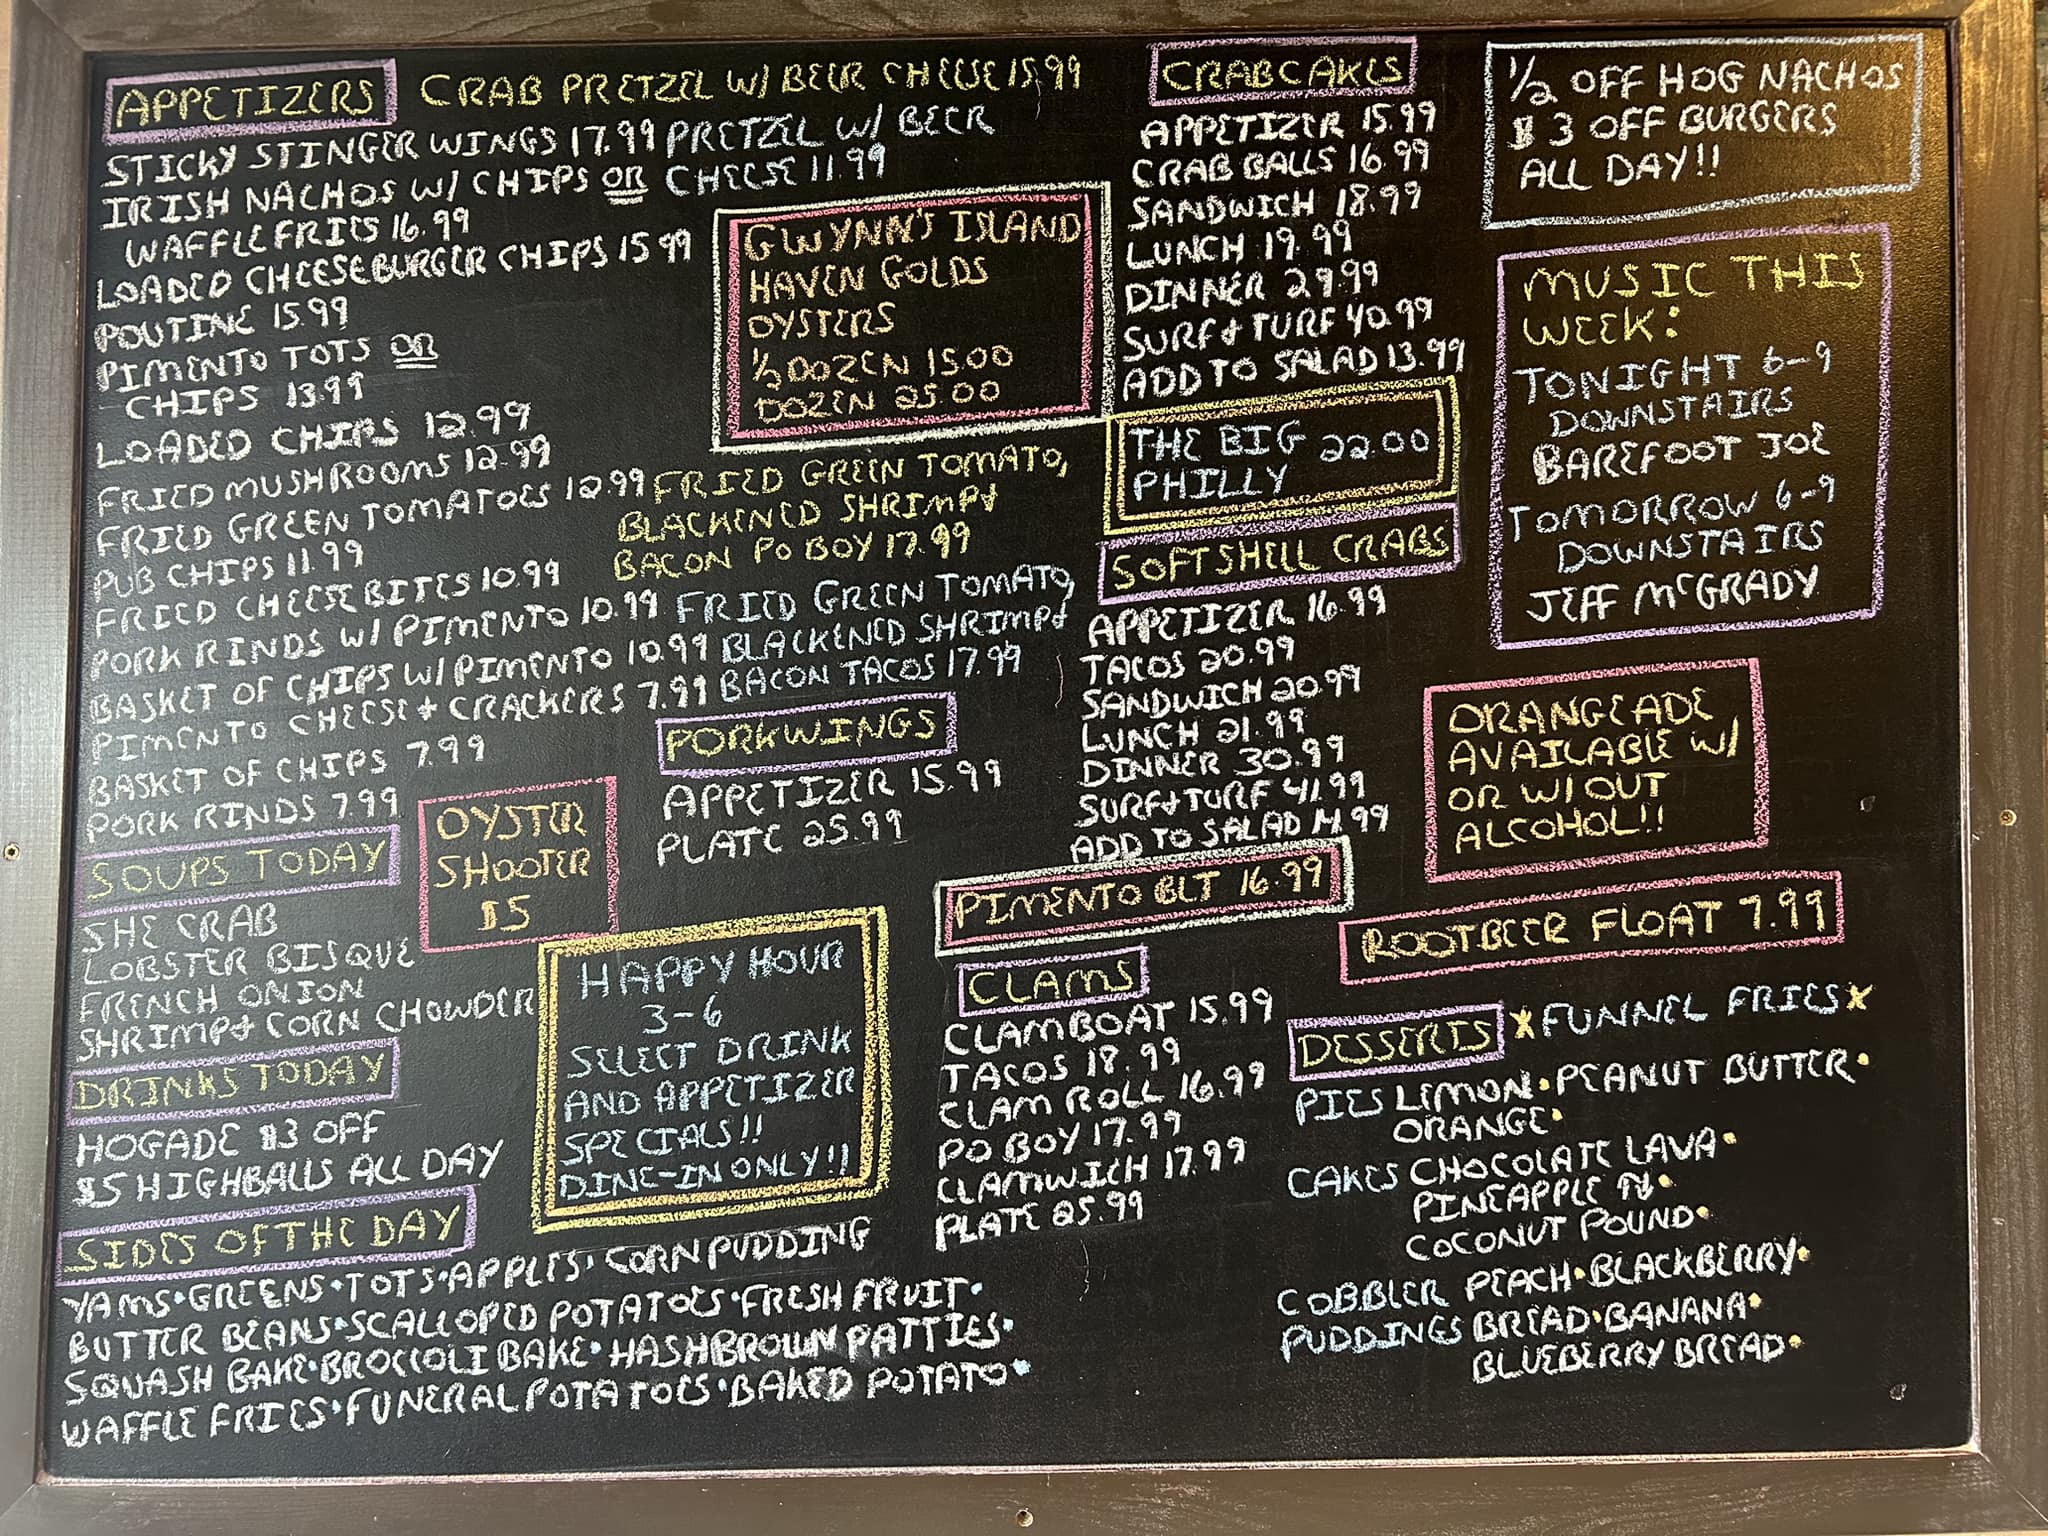 APPETIZERS CRAB PRETZEL W/ BEER CHEESE 15.99
STICKY STINGER WINGS 17.99
IRISH NACHOS W/ CHIPS OR
WAFFLE FRIES 16.99
LOADED CHEESEBURGER CHIPS 15.99
POUTINE 15.99
PIMENTO TOTS OR
CHIPS 13.99
LOADED CHIPS 12.99
FRIED MUSHROOMS 12.99
FRIED GREEN TOMATOES 12.99
PUB CHIPS 11.99
FRIED CHEESE BITES 10.99
PORK RINDS W/ PIMENTO 10.99
BASKET OF CHIPS W/ PIMENTO 10.99
PIMENTO CHEESE + CRACKERS 7.99
BASKET OF CHIPS 7.99
PORK RINDS 7.99
PRETZEL W/ BEER
CHEESE 11.99
GWYNN'S ISLAND
HAVEN GOLDS
OYSTERS
1/2 DOZEN 15.00
DOZEN 25.00
FRIED GREEN TOMATO,
BLACKENED SHRIMP +
BACON PO BOY 17.99
FRIED GREEN TOMATO,
BLACKENED SHRIMP +
BACON TACOS 17.99
PORKWINGS
APPETIZER 15.99
PLATE 25.99
SOUPS TODAY
SHE CRAB
LOBSTER BISQUE
FRENCH ONION
SHRIMP + CORN CHOWDER
OYSTER
SHOOTER
$5
DRINKS TODAY
HOGADE $3 OFF
$5 HIGHBALLS ALL DAY
HAPPY HOUR
3-6
SELECT DRINK
AND APPETIZER
SPECIALS!!
DINE-IN ONLY!!
SIDES OF THE DAY
YAMS • GREENS • TOTS • APPLES • CORN PUDDING
BUTTER BEANS • SCALLOPED POTATOES • FRESH FRUIT •
SQUASH BAKE • BROCCOLI BAKE • HASHBROWN PATTIES •
WAFFLE FRIES • FUNERAL POTATOES • BAKED POTATO •
CRABCAKES
APPETIZER 15.99
CRAB BALLS 16.99
SANDWICH 18.99
LUNCH 19.99
DINNER 29.99
SURF + TURF 40.99
ADD TO SALAD 13.99
THE BIG 22.00
PHILLY
SOFTSHELL CRABS
APPETIZER 16.99
TACOS 20.99
SANDWICH 20.99
LUNCH 21.99
DINNER 30.99
SURF + TURF 41.99
ADD TO SALAD 14.99
PIMENTO BLT 16.99
CLAMS
CLAM BOAT 15.99
TACOS 18.99
CLAM ROLL 16.99
PO BOY 17.99
CLAMWICH 17.99
PLATE 25.99
1/2 OFF HOG NACHOS
$3 OFF BURGERS
ALL DAY!!
MUSIC THIS
WEEK:
TONIGHT 6-9
DOWNSTAIRS
BAREFOOT JOE
TOMORROW 6-9
DOWNSTAIRS
JEFF McGRADY
ORANGEADE
AVAILABLE W/
OR W/OUT
ALCOHOL!!
ROOTBEER FLOAT 7.99
DESSERTS *FUNNEL FRIES*
PIES LEMON • PEANUT BUTTER •
ORANGE •
CAKES CHOCOLATE LAVA •
PINEAPPLE •
COCONUT POUND •
COBBLER PEACH • BLACKBERRY •
PUDDINGS BREAD • BANANA •
BLUEBERRY BREAD •